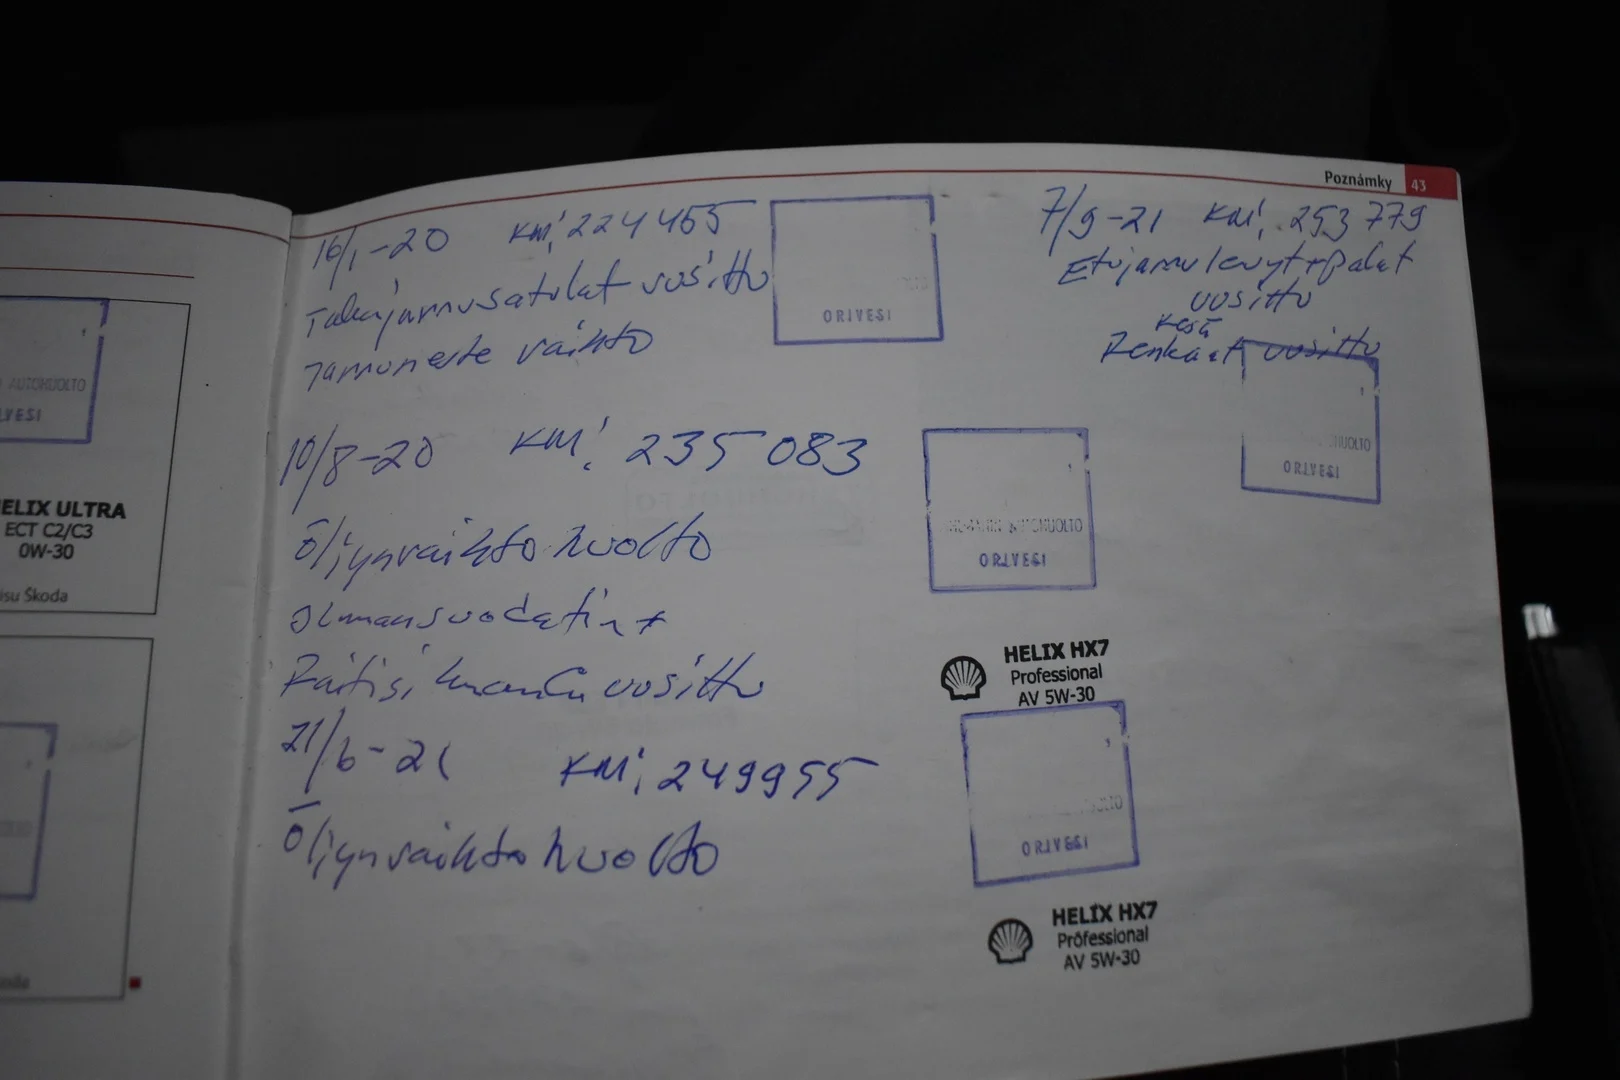 AUTOHUOLTO
IVESI
ELIX ULTRA
ECT C2/C3
0W-30
isu Škoda
Poznámky 43
16/1-20 KM: 224465
Takajarrusatulat uusittu
Jarruneste vaihto
ORIVESI
10/8-20 KM: 235 083
Öljynvaihto huolto
ilmansuodatin +
Raitisilma uusittu
AUTOHUOLTO
ORIVESI
HELIX HX7
Professional
AV 5W-30
21/6-21 KM: 249955
Öljynvaihto huolto
OLTO
ORIVESI
HELIX HX7
Professional
AV 5W-30
7/9-21 KM: 253 779
Etujarrulevyt+palat
uusittu
kesä
Renkaat uusittu
HUOLTO
ORIVESI